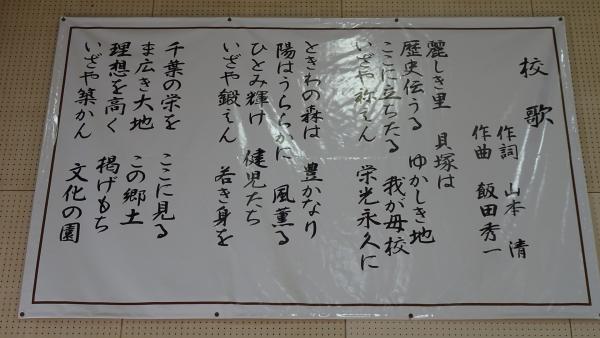 校歌
作詞 山本 清
作曲 飯田秀一
麗しき里 貝塚は
歴史伝うる ゆかしき地
ここに立ちたる 我が母校
いざや称えん 栄光永久に
ときわの森は 豊かなり
陽はうららかに 風薫る
ひとみ輝け 健児たち
いざや鍛えん 若き身を
千葉の栄を ここに見る
ま広き大地 この郷土
理想を高く 掲げもち
いざや築かん 文化の園